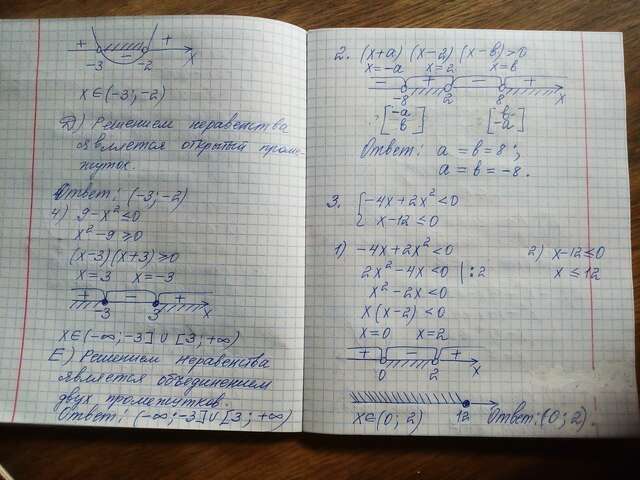 + - +
-3 -2 x
x∈(-3;-2)
Д) Решением неравенства
является открытый проме-
жуток.
Ответ: (-3;-2)
4) 9-x²≤0
x²-9≥0
(x-3)(x+3)≥0
x=3 x=-3
+ - +
-3 3 x
x∈(-∞;-3]∪[3;+∞)
Е) Решением неравенства
является объединением
двух промежутков.
Ответ: (-∞;-3]∪[3;+∞)
2. (x+a)(x-2)(x-b)>0
x=-a x=2 x=b
- + - +
-8 2 8 x
[-a [b
b] -a]
Ответ: a=b=8;
a=b=-8.
3. {-4x+2x²<0
x-12≤0
1) -4x+2x²<0 2) x-12≤0
2x²-4x<0 |:2 x≤12
x²-2x<0
x(x-2)<0
x=0 x=2
+ - +
0 2 x
12
x∈(0;2) Ответ:(0;2).